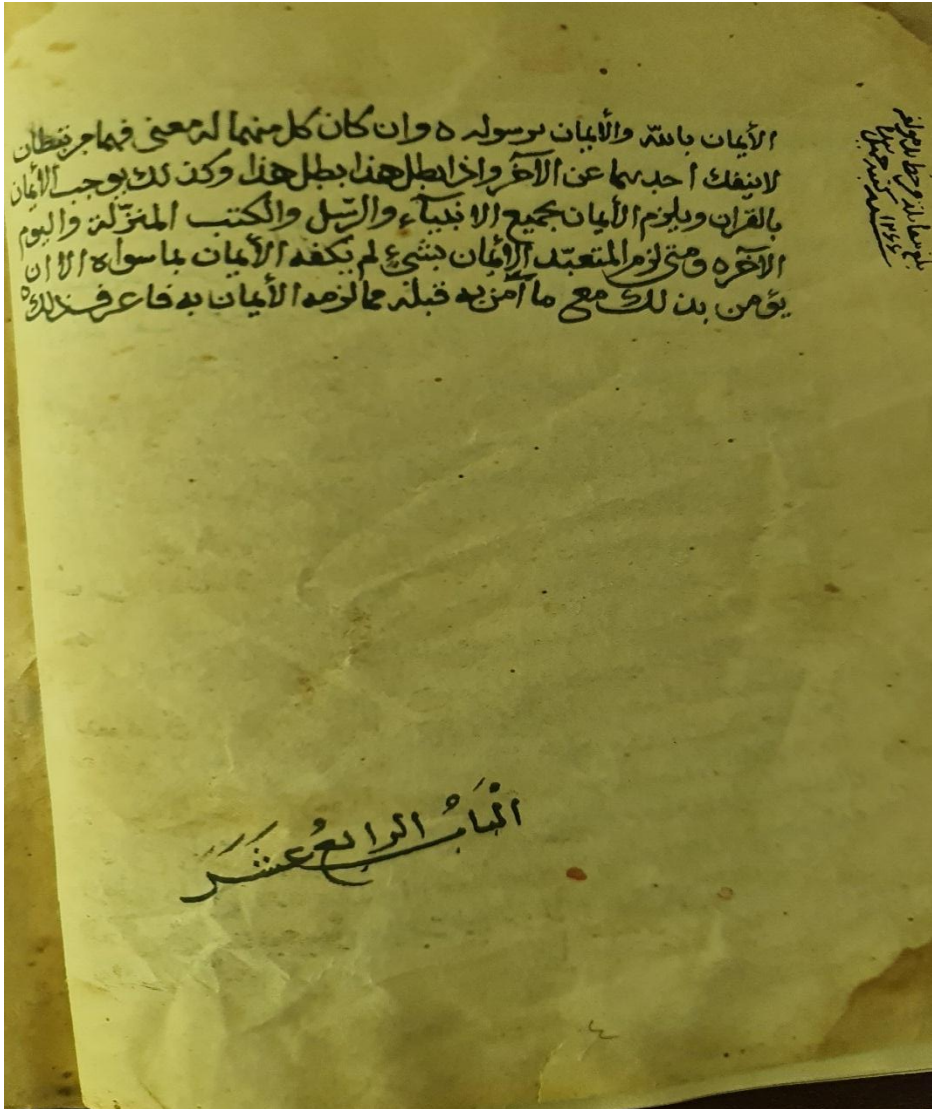 الأيمان بالله والأيمان برسوله ه وان كان كل منهما له معنى فهما مرتبطان
لا ينفك احدهما عن الآخر واذا بطل هذا بطل هذا وكذلك يوجب الأيمان
بالقران ويلزم الأيمان بجميع الانبيآء والرّسل والكتب المنزّلة واليوم
الآخره ومتى لزم المتعبّد الأيمان بشيءٍ لم يكفه الأيمان بما سواه الا ان
يؤمن بذلك مع ما آمن به قبله مما لزمه الأيمان به فاعرف ذلك ه
البَابُ الرابعُ عَشَرَ
سنة ١٣٤٤